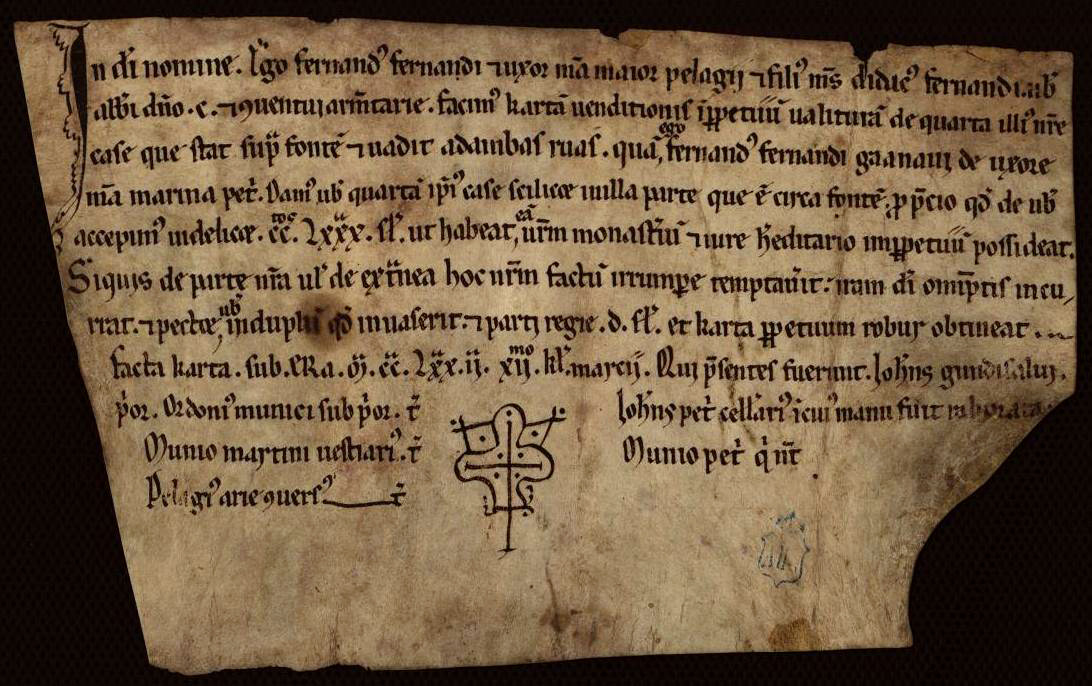 In dĩ nomine. Ego fernandꝰ fernandi ⁊ uxor m̃a maior pelagij ⁊ filiꝰ m̃s didacꝰ fernandi. uob̃
abbi dño .c. ⁊ ꝯventui arm̃tarie. facimꝰ kartã uenditionis ĩppetuũ ualiturã de quarta illiꝰ nr̃e
case que stat sup̃ fontẽ ⁊ uadit adambas ruas. quã ego fernandꝰ fernandi gaanaui de uxore
m̃a marina pet̃. Damꝰ uob̃ quartã ip̃iꝰ case scilicet in illa parte que ẽ circa fontẽ, ꝓ p̃cio qd̃ de uob̃
accepimꝰ uidelicet. cc̃. Lxxx. sł. ut habeat eã ur̃m monast̃iũ ⁊ iure h̃editario imppetuũ possideat.
Siquis de parte nr̃a uł de ext̃nea hoc nr̃m factũ irrumpe temptau̾it. iram dĩ omip̃tis incu
rrat. ⁊ pectet uob̃ in duplũ qd̃ inuaserit. ⁊ parti regie .d. sł. et karta ppetuum robur obtineat
facta karta. sub. ERa. ꝏ̃. cc̃. Lxx. ij. xij.mo kł. marcij. Qui p̃sentes fuerunt. Joh̃ns gundisalui.
p̾or. Ordoniꝰ munici sub p̾or. t̃
Joh̃ns pet̃ cellariꝰ ĩ cuiꝰ manu fuit roborata
Munio martini uestiariꝰ. t̃
Munio pet̃ q̾ not̃
Pelagiꝰ arie ꝯuersꝰ t̃